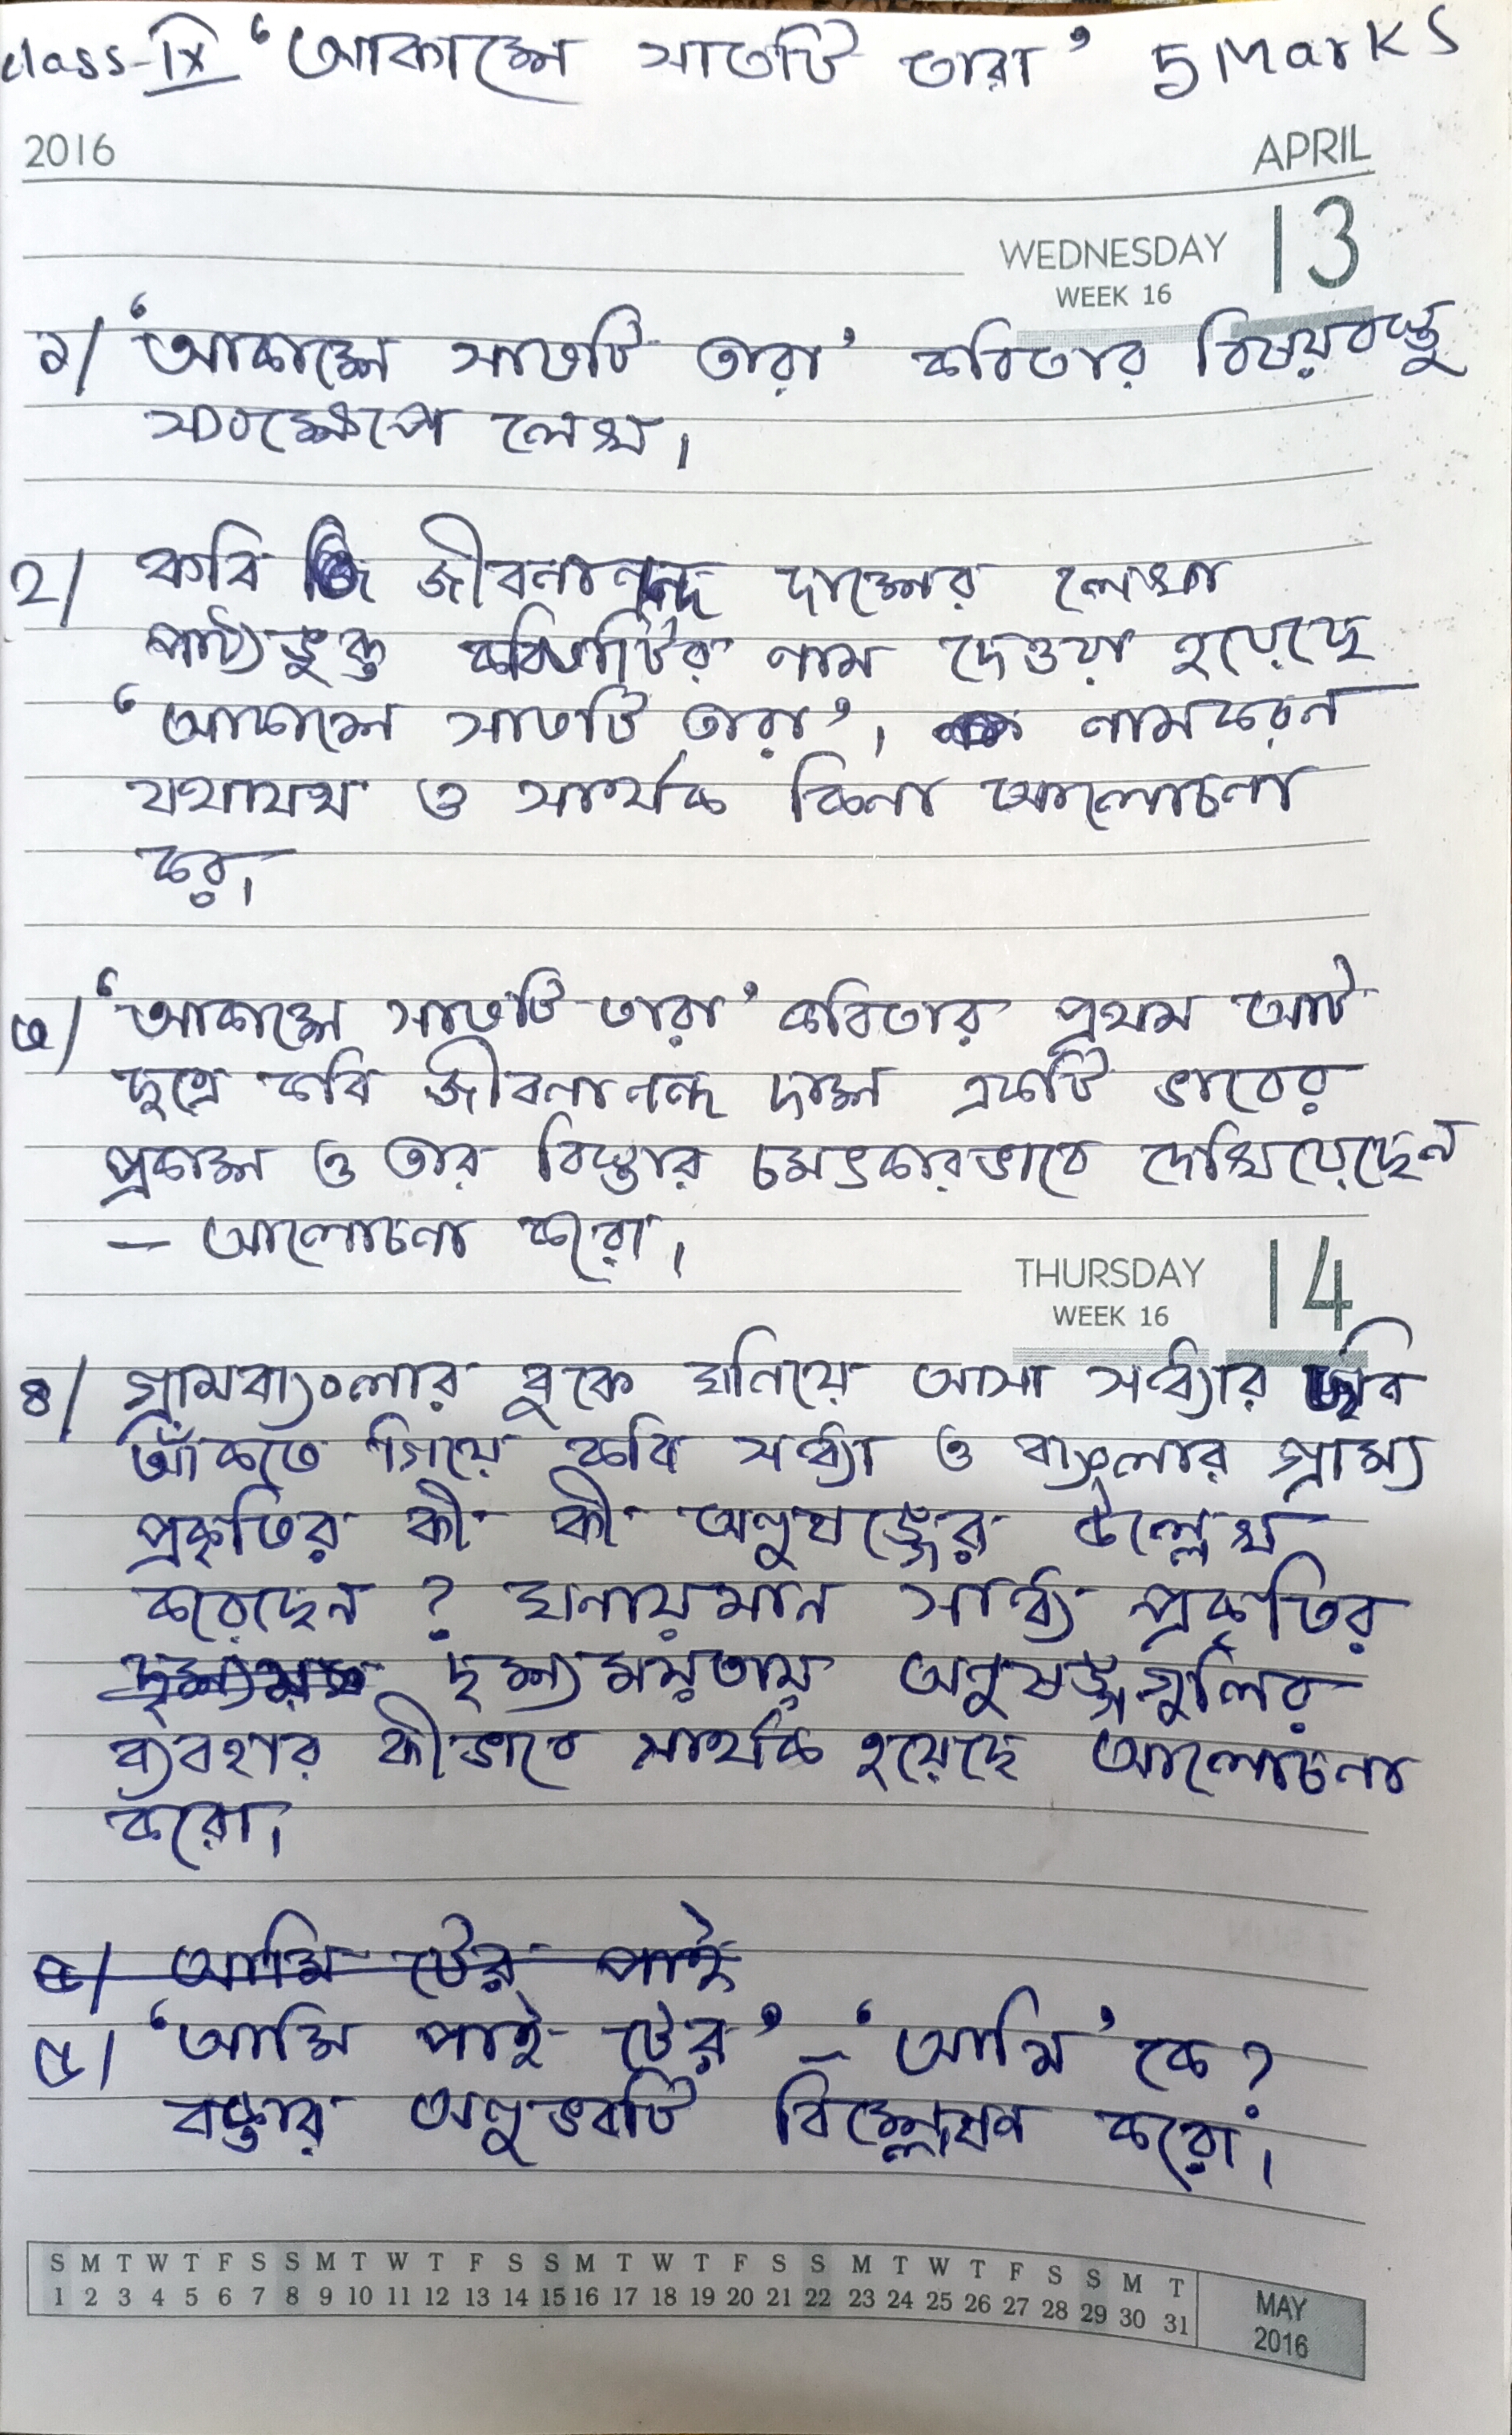 class-IX 'আকাশে সাতটি তারা' 5 Marks
2016 APRIL
WEDNESDAY 13
WEEK 16
১/ 'আকাশে সাতটি তারা' কবিতার বিষয়বস্তু
সংক্ষেপে লেখ।
২/ কবি জীবনানন্দ দাশের লেখা
পাঠ্যভুক্ত কবিতাটির নাম দেওয়া হয়েছে
'আকাশে সাতটি তারা'। নামকরন
যথাযথ ও সার্থক কিনা আলোচনা
কর।
৩/ 'আকাশে সাতটি তারা' কবিতার প্রথম আট
ছত্রে কবি জীবনানন্দ দাশ একটি ভাবের
প্রকাশ ও তার বিস্তার চমৎকারভাবে দেখিয়েছেন
— আলোচনা করো।
THURSDAY 14
WEEK 16
৪/ গ্রামবাংলার বুকে ঘনিয়ে আসা সন্ধ্যার ছবি
আঁকতে গিয়ে কবি সন্ধ্যা ও বাংলার গ্রাম্য
প্রকৃতির কী কী অনুষঙ্গের উল্লেখ
করেছেন? ঘনায়মান সান্ধ্য প্রকৃতির
দৃশ্যময়তায় অনুষঙ্গগুলির
ব্যবহার কীভাবে সার্থক হয়েছে আলোচনা
করো।
৫/ আমি টের পাই
৫/ 'আমি পাই টের' – 'আমি' কে?
বক্তার অনুভবটি বিশ্লেষণ করো।
S M T W T F S S M T W T F S S M T W T F S S M T W T F S S M T
1 2 3 4 5 6 7 8 9 10 11 12 13 14 15 16 17 18 19 20 21 22 23 24 25 26 27 28 29 30 31
MAY
2016